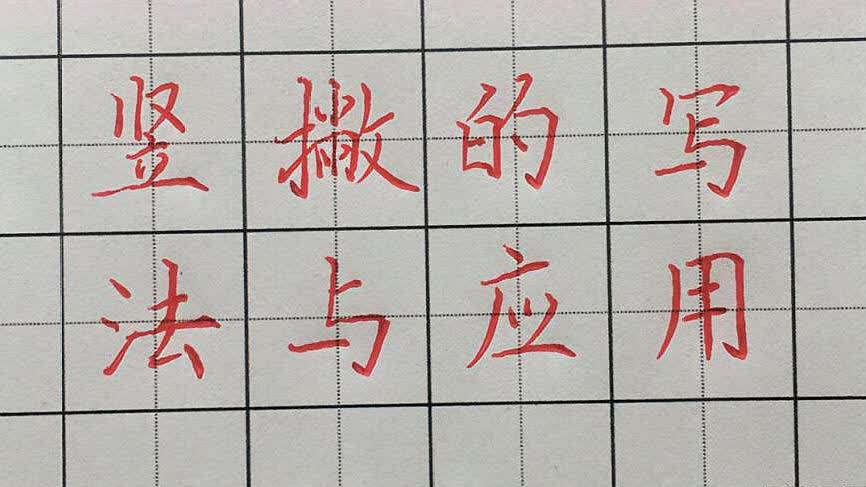 竖撇的写
法与应用